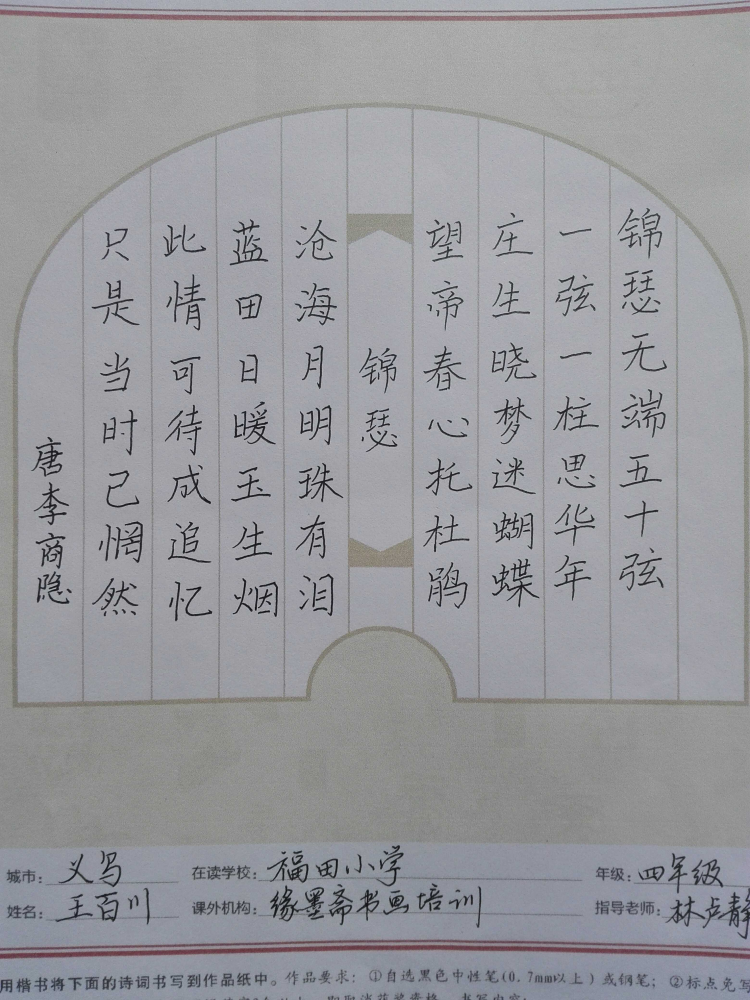 锦瑟无端五十弦
一弦一柱思华年
庄生晓梦迷蝴蝶
望帝春心托杜鹃
锦瑟
沧海月明珠有泪
蓝田日暖玉生烟
此情可待成追忆
只是当时已惘然
唐李商隐
城市：义乌 在读学校：福田小学 年级：四年级
姓名：王百川 课外机构：缘墨斋书画培训 指导老师：林卢静
用楷书将下面的诗词书写到作品纸中。作品要求：①自选黑色中性笔(0.7mm以上)或钢笔；②标点免写